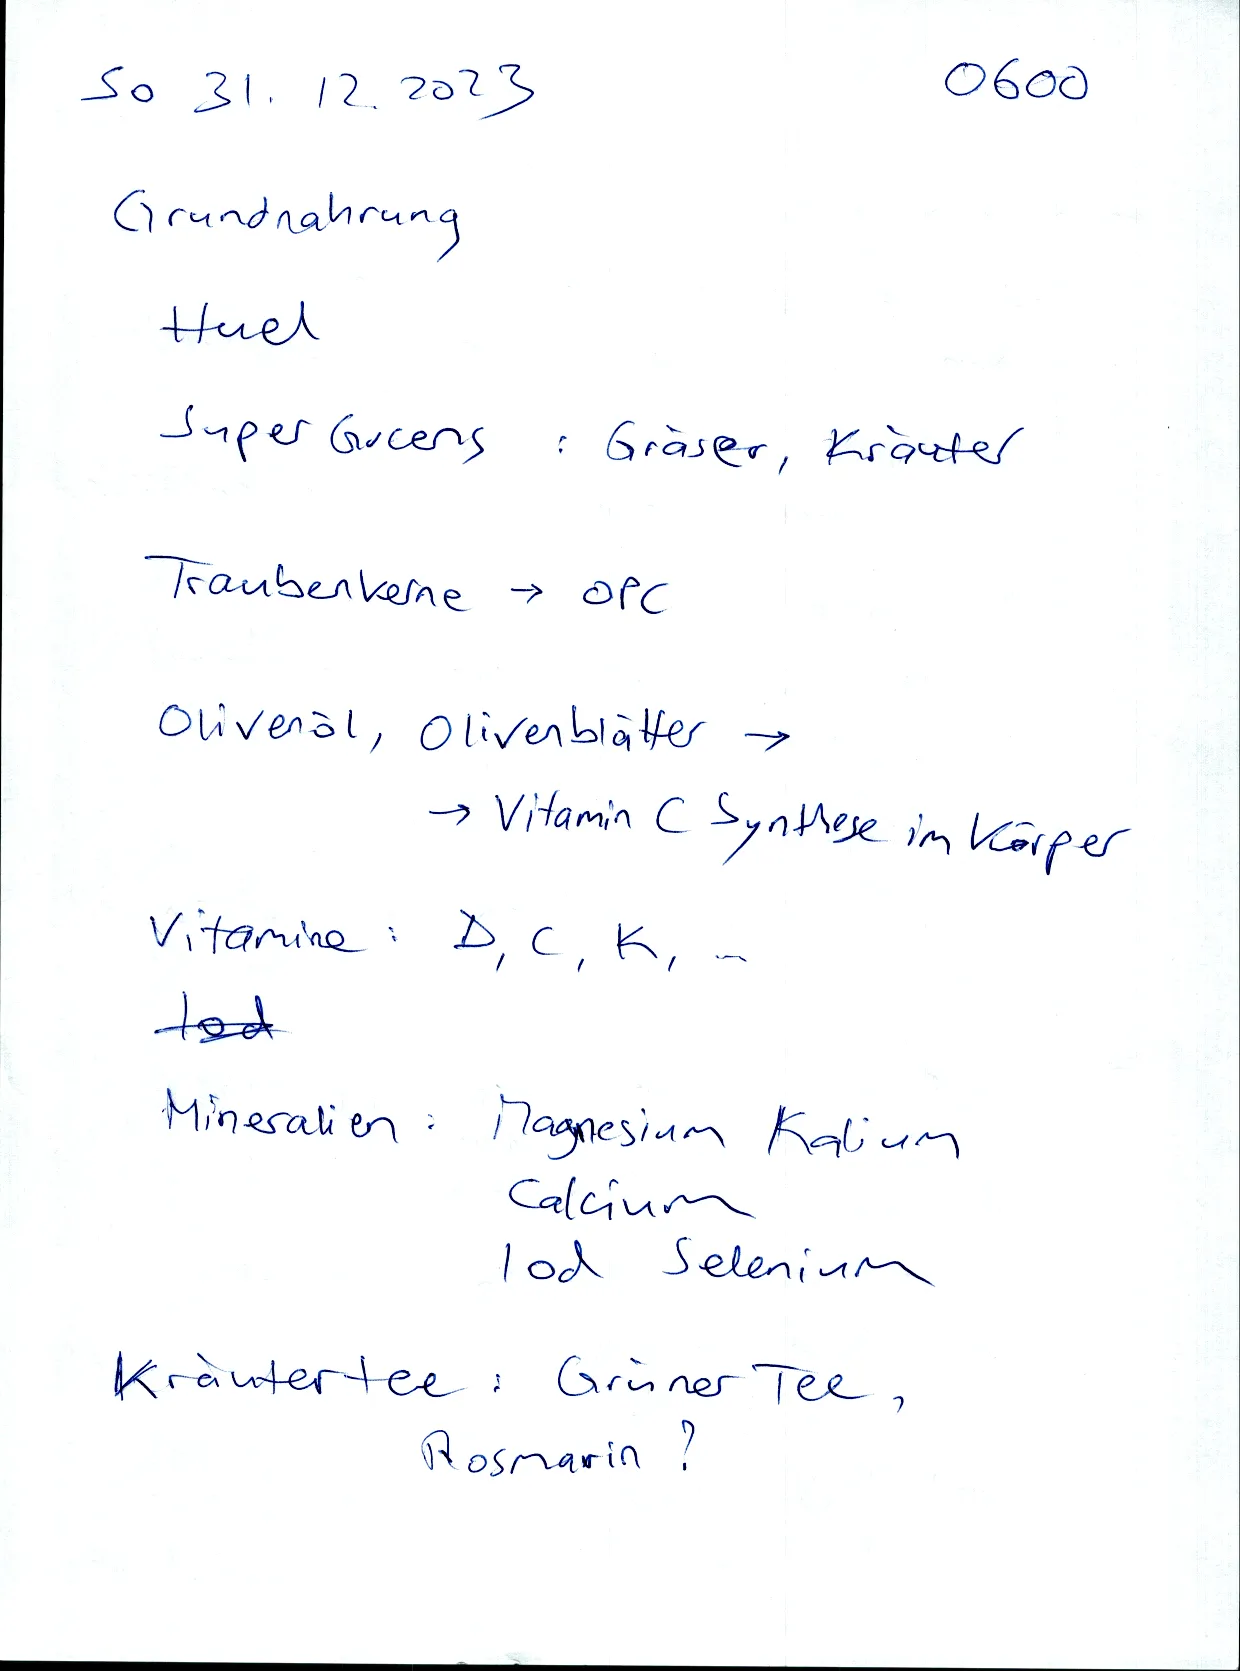 So 31. 12. 2023 0600
Grundnahrung
Huel
Super Greens : Gräser, Kräuter
Traubenkerne → OPC
Olivenöl, Olivenblätter →
→ Vitamin C Synthese im Körper
Vitamine : D, C, K, ...
Iod
Mineralien : Magnesium Kalium
Calcium
Iod Selenium
Kräutertee : Grüner Tee,
Rosmarin ?